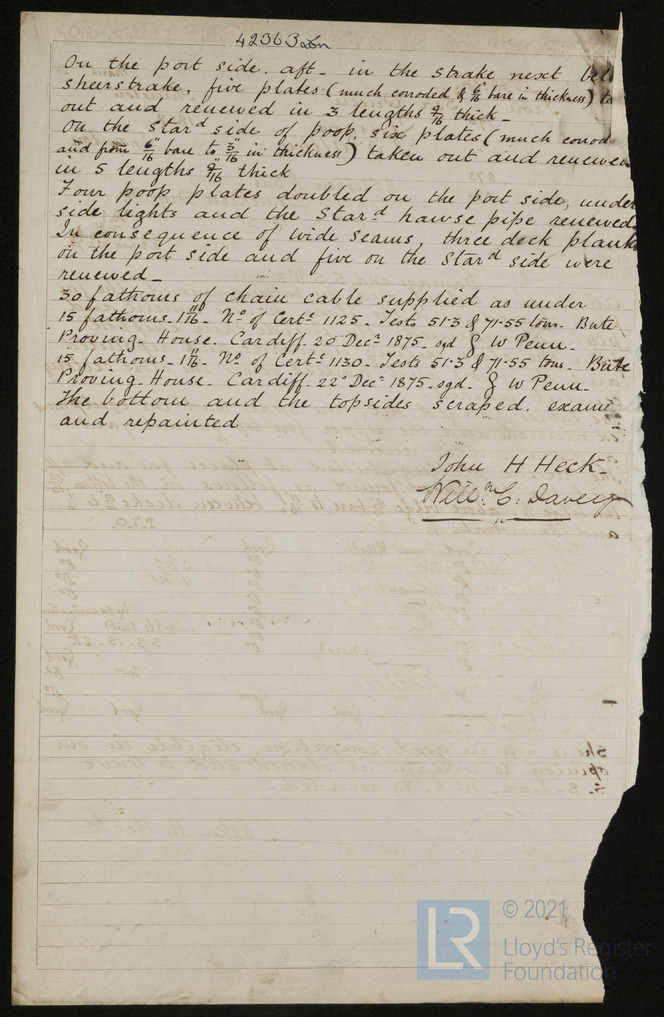 42363 Lon
On the port side. aft - in the strake next bel
sheerstrake, five plates (much corroded & 6/16 bare in thickness) ta
out and renewed in 3 lengths 9/16 thick -
On the Starᵈ side of poop, six plates (much corrod
and from 6/16" bare to 3/16" in thickness) taken out and renewed
in 5 lengths 9/16" thick
Four poop plates doubled on the port side, under
side lights and the Starᵈ hawse pipe renewed.
In consequence of wide seams, three deck planks
on the port side and five on the Starᵈ side were
renewed -
30 fathoms of chain cable supplied as under
15 fathoms. 1 11/16 - Nº of Certᵗ 1125. Tests 51·3 & 71·55 tons. Bute
Proving House. Cardiff. 20 Decʳ 1875. sgd W Penn.
15 fathoms. 1 11/16. Nº of Certᵗ 1130. Tests 51·3 & 71·55 tons. Bute
Proving House. Cardiff. 22 Decʳ 1875. sgd. W Penn.
The bottom and the topsides scraped. exami
and repainted
John H Heck
Willᵐ C. Davey
LR © 2021
Lloyd's Register
Foundation